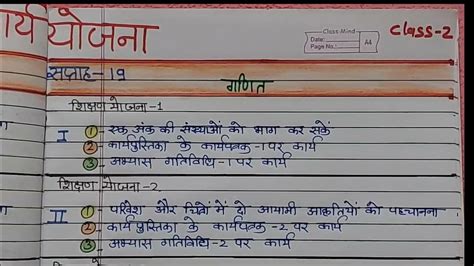 कार्य योजना
Class Mind
Date:
Page No.:
A4
Class-2
सप्ताह-19
गणित
शिक्षण योजना-1
I ① - एक अंक की संख्याओं को भाग कर सकें
② - कार्यपुस्तिका के कार्यपत्रक-1 पर कार्य
③ - अभ्यास गतिविधि-1 पर कार्य
शिक्षण योजना-2
II ① - परिवेश और चित्रों में दो आयामी आकृतियों को पहचानना
② - कार्यपुस्तिका के कार्यपत्रक-2 पर कार्य
③ - अभ्यास गतिविधि-2 पर कार्य